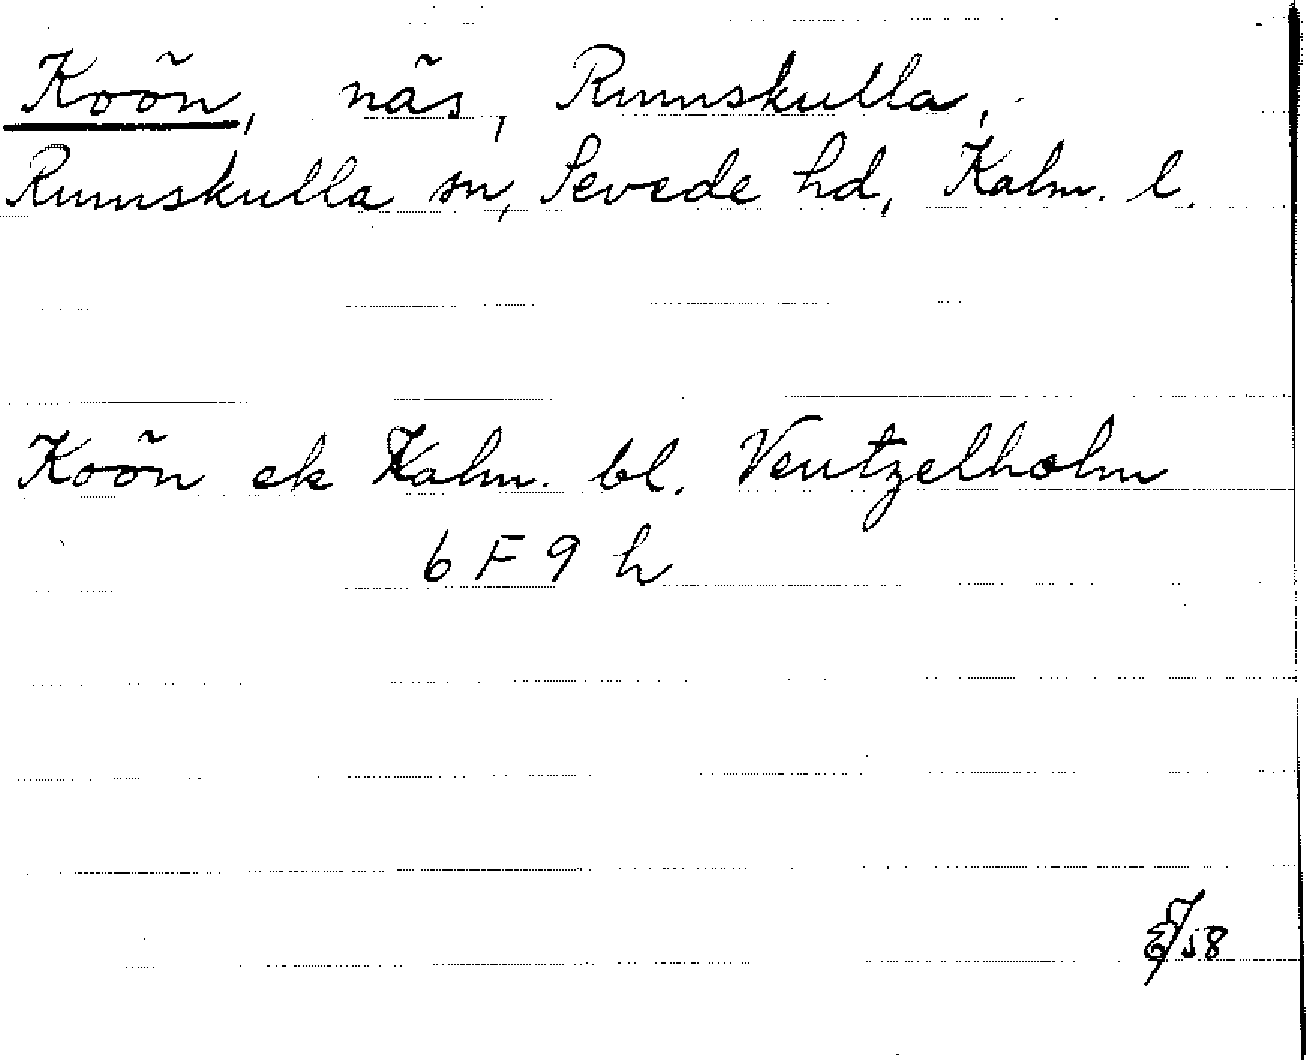 Koön, näs, Rumskulla,
Rumskulla sn, Sevede hd, Kalm. l.
Koön ek Kalm. bl. Ventzelholm
6 F 9 h
58